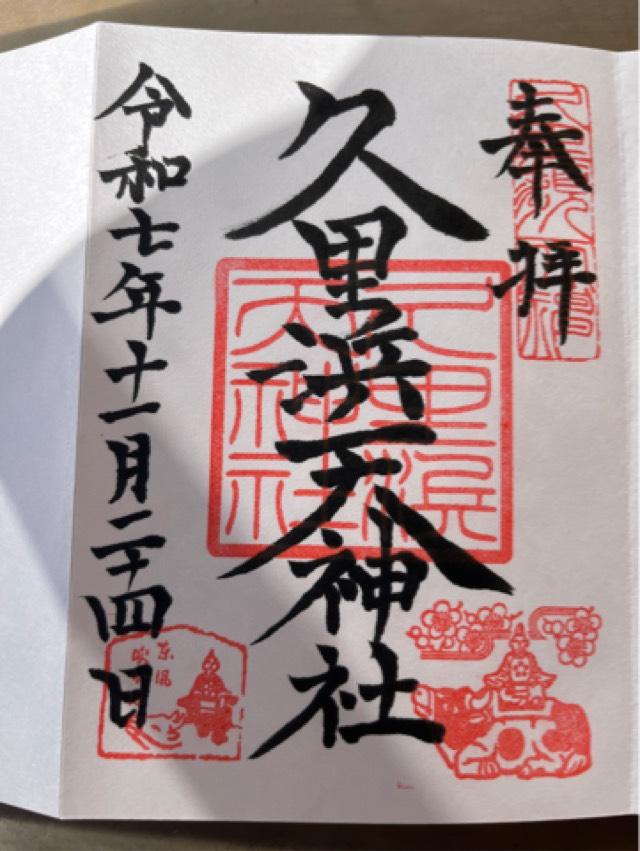 奉拝
久里浜天神社
令和七年十一月二十四日
久里浜
天神社
東風